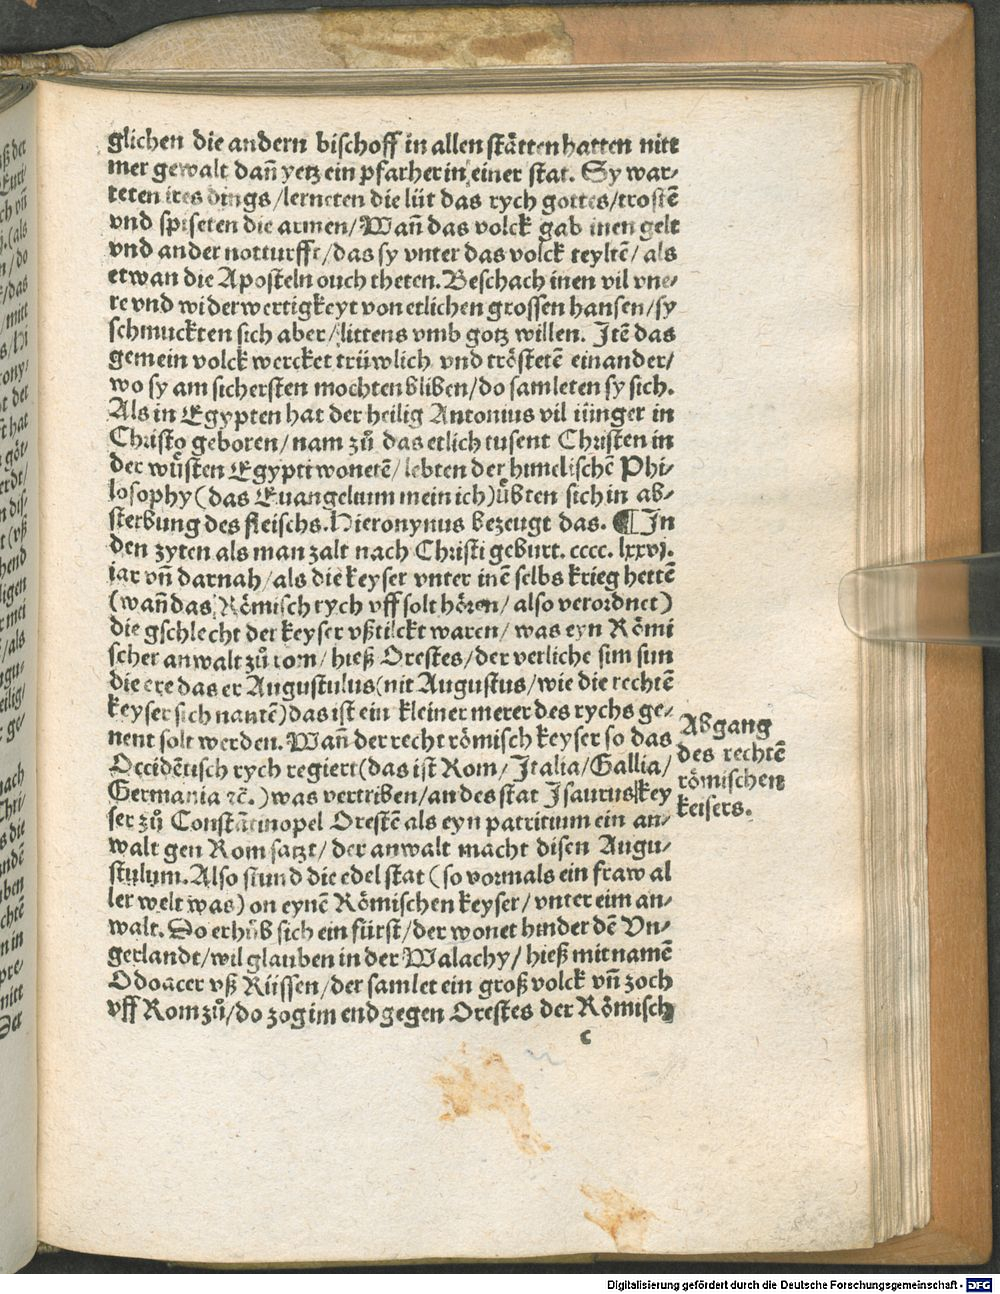 glichen die andern bischoff in allen stätten hatten nitt
mer gewalt dañ yetz ein pfarher in einer stat. Sy war⸗
teten ires dings/ lerneten die lüt das rych gottes/ trostē
vnd spiseten die armen/ Wañ das volck gab inen gelt
vnd ander notturfft/ das sy vnter das volck teyltē/ als
etwan die Aposteln ouch theten. Beschach inen vil vne⸗
re vnd widerwertigkeyt von etlichen grossen hansen/ sy
schmuckten sich aber/ littens vmb gotz willen. Itē das
gemein volck wercket trüwlich vnd tröstetē einander/
wo sy am sichersten mochten bliben/ do samleten sy sich.
Als in Egypten hat der heilig Antonius vil iünger in
Christo geboren/ nam zů das etlich tusent Christen in
der wüsten Egypti wonetē/ lebten der himelischē Phi⸗
losophy (das Euangelium mein ich) übten sich in ab⸗
sterbung des fleischs. Hieronymus bezeugt das. ¶ In
den zyten als man zalt nach Christi geburt. cccc. lxxvj.
iar vñ darnah/ als die keyser vnter inē selbs krieg hettē
(wañ das Römisch rych vff solt hören/ also verordnet)
die gschlecht der keyser vßtilckt waren/ was eyn Römi
scher anwalt zů rom/ hieß Orestes/ der verliche sim sun
die ere das er Augustulus (nit Augustus/ wie die rechtē
keyser sich nantē) das ist ein kleiner merer des rychs ge⸗
nent solt werden. Wañ der recht römisch keyser so das
Occidētisch rych regiert (das ist Rom/ Italia/ Gallia/
Germania ꝛc̄.) was vertriben/ an des stat Isaurus key
ser zů Constātinopel Orestē als eyn patritium ein an⸗
walt gen Rom satzt/ der anwalt macht disen Augu⸗
stulum. Also stund die edel stat (so vormals ein fraw al
ler welt was) on eynē Römischen keyser/ vnter eim an⸗
walt. Do erhůb sich ein fürst/ der wonet hinder dē Vn⸗
gerlandt/ wil glauben in der Walachy/ hieß mit namē
Odoacer vß Rüssen/ der samlet ein groß volck vñ zoch
vff Rom zů/ do zog im endgegen Orestes der Römisch
c
Abgang
des rechtē
römischen
keisers.
Digitalisierung gefördert durch die Deutsche Forschungsgemeinschaft - DFG